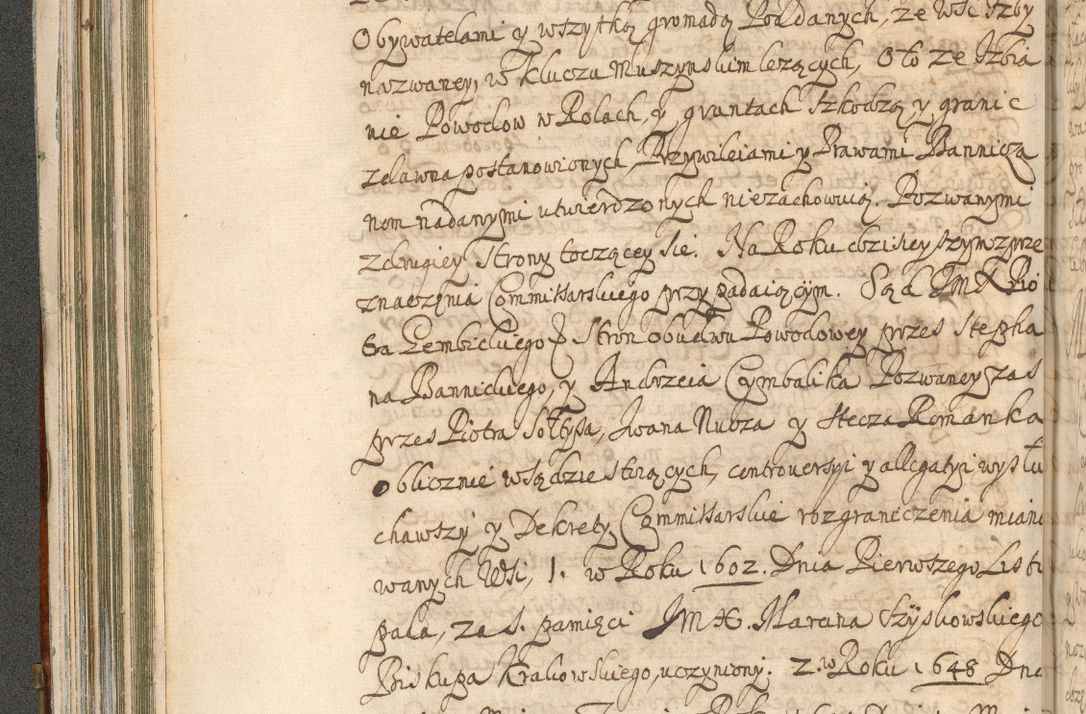 Obywatelami y wszytką gromadą Poddanych, ze wsi Szby
nazwaney, w Kluczu Muszynskim lezących, o to ze Szbia
nie Powodow w Rolach, y gruntach szkodzą y granic
zdawna postanowionych, Przywileiami y Prawami Bannicza
nom nadanymi utwierdzonych niezachowuią. Pozwanymi
zdrugiey strony toczącey sie. Na Roku dzisieyszym z prze
znaczenia Commissarskiego przypadaiącym. Sąd JMX Pio
tra Gembickiego Stron obudwu Powodowey przes Stepha
na Bannickiego, y Andrzeia Cymbalika Pozwaney zas
przes Piotra Sołtysa, Iwana Nubza y Hecza Romanka
oblicznie w sądzie stoiących, controversyi y allegatyi wysłu
chawszy y Dekrety Commissarskie rozgraniczenia miano
wanych Wsi, 1. w Roku 1602. Dnia Pierwszego Listo
pada, za S. pamięci JMX. Marcina Szyskowskiego
Biskupa Krakowskiego, uczyniony. 2. w Roku 1648 Dnia